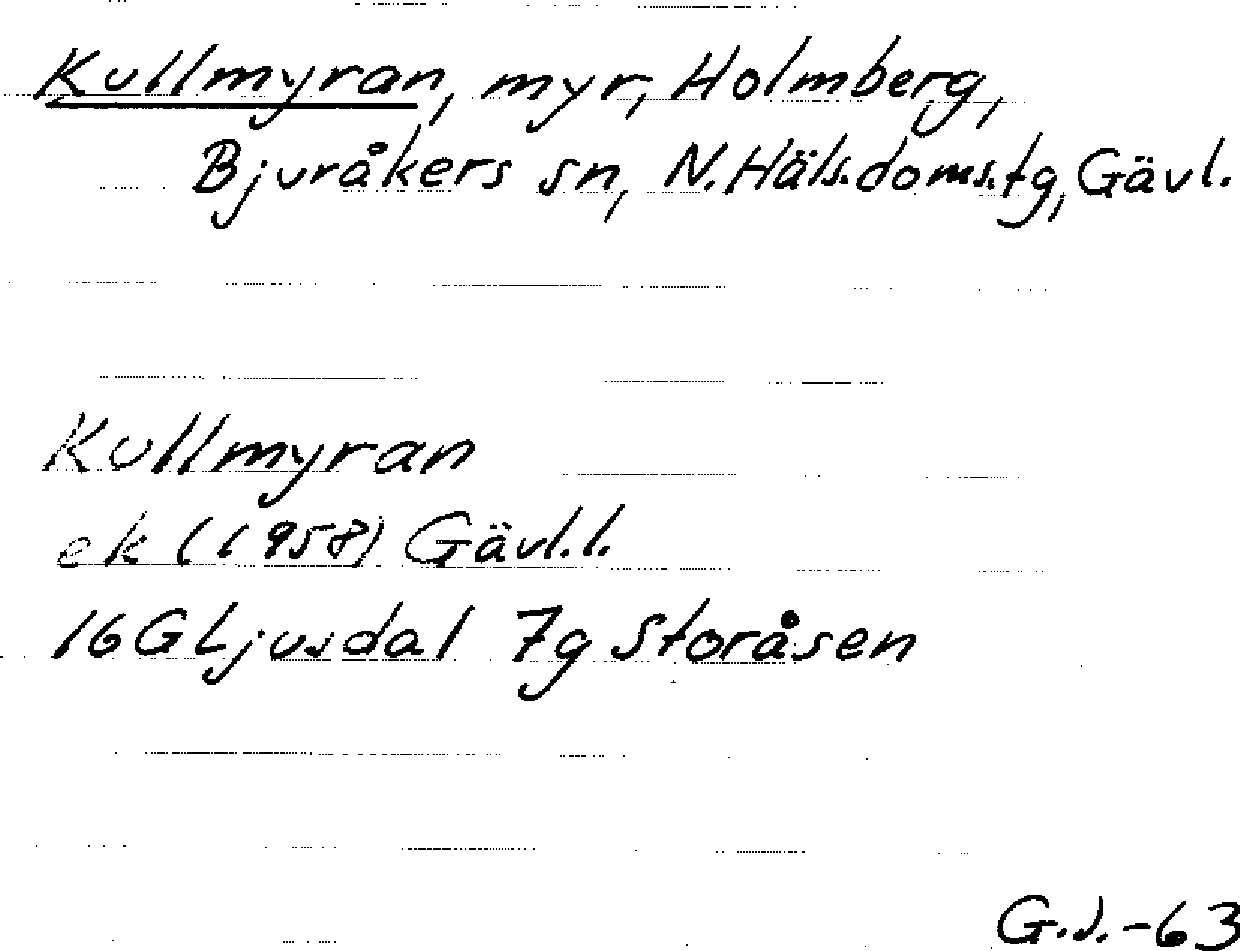 Kullmyran, myr, Holmberg,
Bjuråkers sn, N. Häls. doms. tg, Gävl.
Kullmyran
ek (1958) Gävl. l.
16G Ljusdal 7g Storåsen
G.J.-63